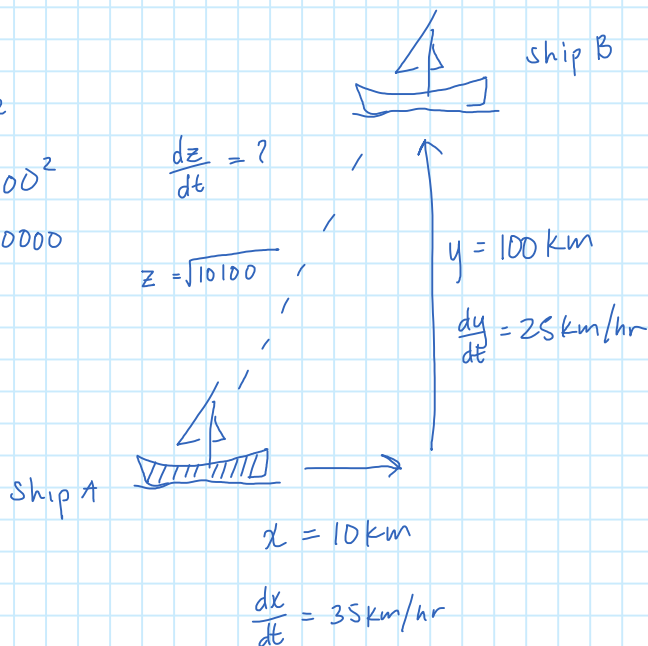 ship B
00²
dz/dt = ?
0000
z = √10100
y = 100 km
dy/dt = 25 km/hr
Ship A
x = 10 km
dx/dt = 35 km/hr